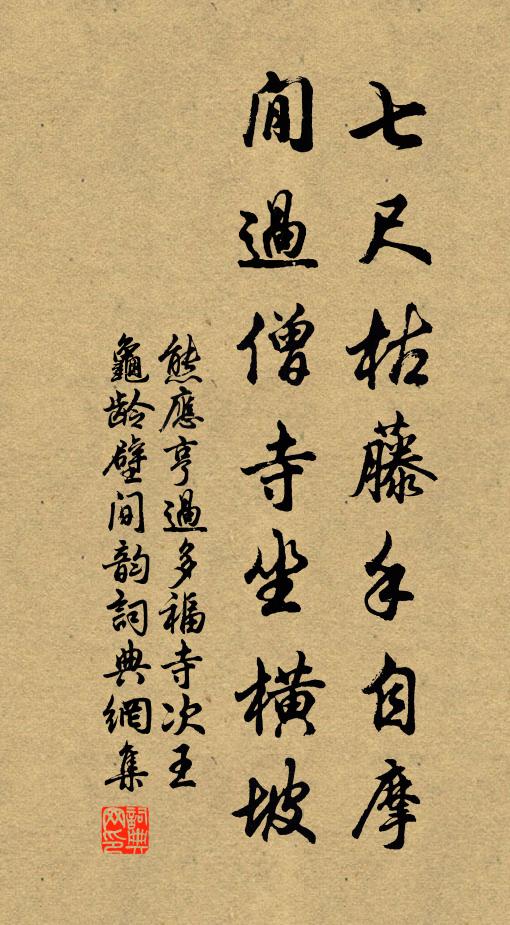 七尺枯藤手自摩
閒過僧寺坐橫坡
熊應亨過多福寺次王
龜齡壁間韵詞典網集
詞典
网印